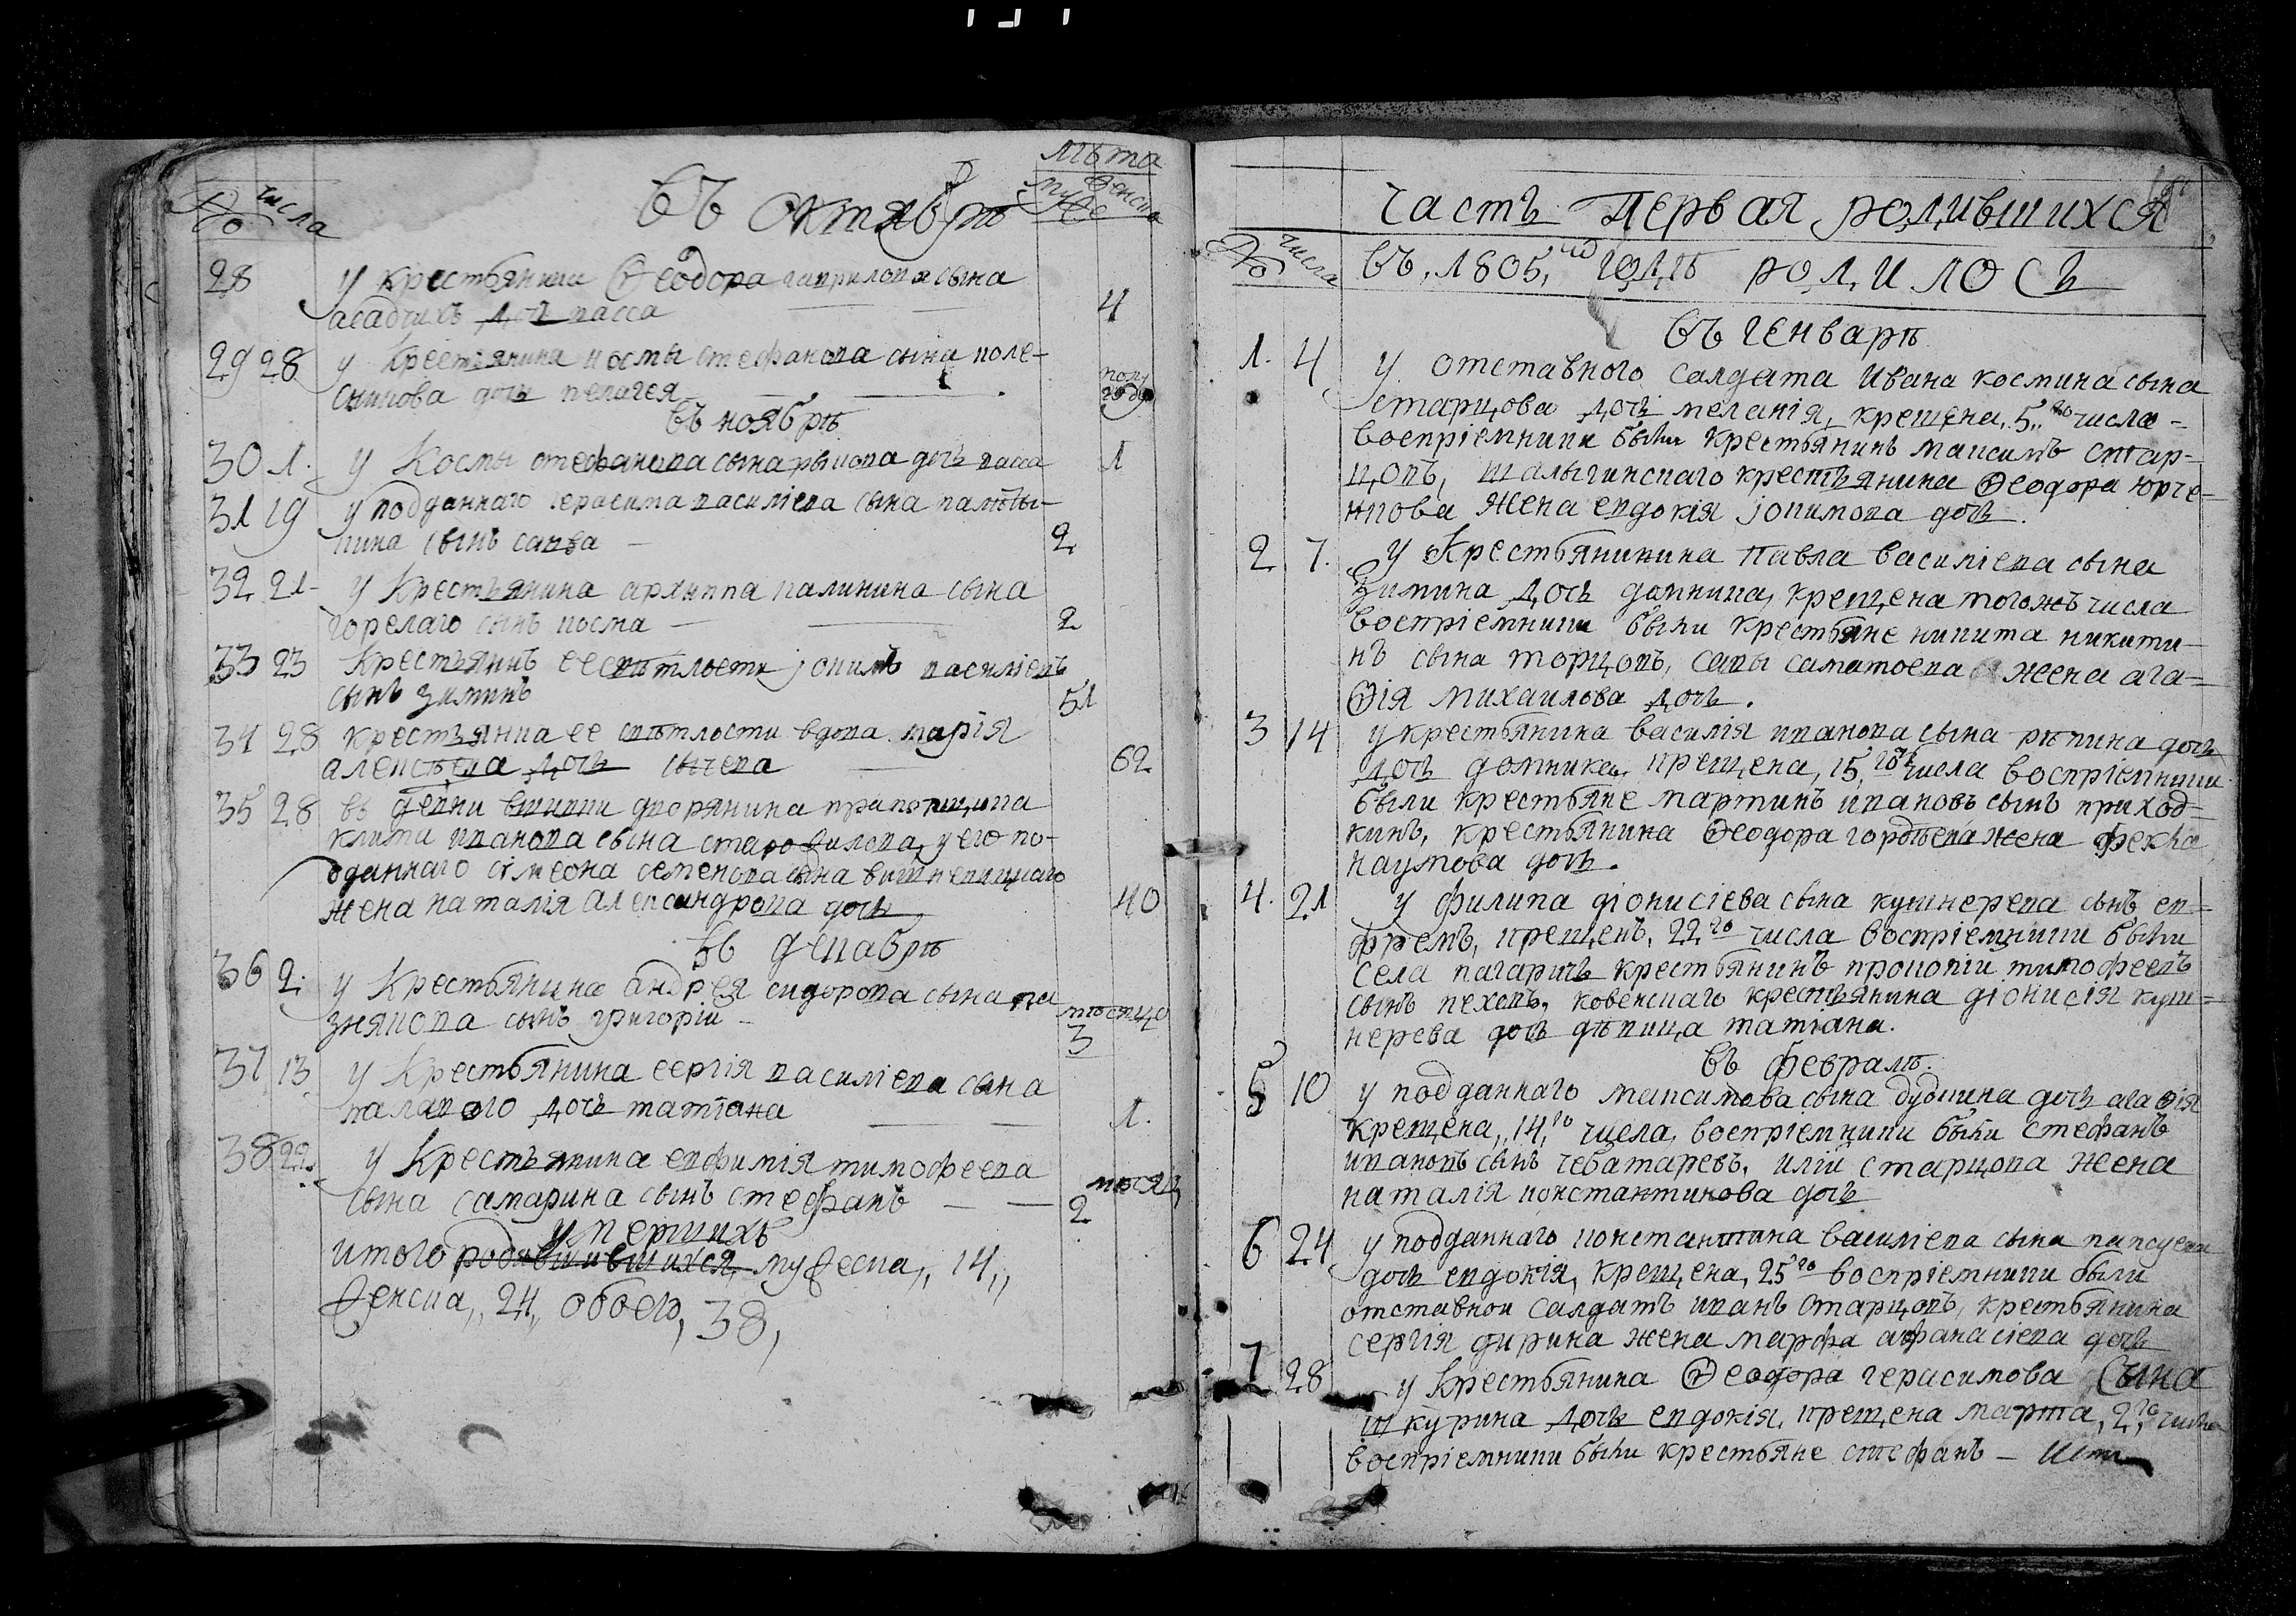 № числа
въ октябрѣ
лѣта
муже женска
28 у крестьянина Ѳеодора гаврилова сына
асадчихъ дочь васса 4
29 28 у крестьянина космы стефанова сына поле-
сникова дочь пелагея полу году
въ ноябрѣ
30 1. у Космы стефанова сына рыкова дочь васса 1
31 19 у подданнаго герасима василіева сына
сынъ савва 2
32 21 у Крестьянина архиппа калинина сына
горелаго сынъ косма 2
33 23 Крестьянинъ ее свѣтлости іокимъ василіевъ
сынъ зиминъ 51
34 28 крестьянка ее свѣтлости вдова марія
алексѣева дочь сычева 62
35 28 въ дворянина прапорщика
ивнова сына у его по-
дданнаго сімеона семенова сына
жена наталія александрова дочь 40
въ декабрѣ
36 2. у Крестьянина андрея сидорова сына
знякова сынъ григорій мѣсяцо 3
37 13 у Крестьянина сергія василіева сына
малаваго дочь татіана 1.
38 22. у Крестьянина евфимія тимофеева
сына самарина сынъ стефанъ мѣсяц 2
умершихъ
итого родившихся мужеска,, 14,,
женска,, 24,, обоего, 38,
часть первая родившихся
№ числа
въ, 1805, го годѣ родилось
въ генварѣ
1. 4 у отставного салдата ивана космина сына
старцова дочь меланія, крещена, 5, го числа -
воспріемники были крестьянинъ максимъ стар-
цовъ, шалыгинскаго крестьянина Ѳеодора юрче-
нкова жена евдокія іокимова дочь.
2 7. у Крестьянинина павла василіева сына
зимина дочь домника, крещена тогожъ числа
воспріемники были крестьяне никита никити-
нъ сына торцовъ, савы саматоева жена ага-
ѳія михаилова дочь.
3 14 у крестьянина василія иванова сына рѣпина дочь
дочь домника, крещена, 15, го числа воспріемники
были крестьяне мартинъ ивановъ сынъ приход-
кинъ, крестьянина Ѳеодора гордѣева жена фекла
наумова дочь.
4. 21 у филипа діонисіева сына кушнерева сынъ ев-
фремъ, крещенъ, 22, го числа воспріемники были
села кагаричь крестьянинъ прокопій тимофеевъ
сынъ пехсвъ, ковенскаго крестьянина діонисія куш-
нерева дочь дѣвица татіана.
въ февралѣ.
5 10 у подданнаго максимова сына дудкина дочь агаѳія
крещена,, 14, го числа, воспріемники были стефанъ
ивановъ сынъ чебатаревъ, иліи старцова жена
наталія константинова дочь
6 24 у подданнаго константина василіева сына
дочь евдокія, крещена, 25 го воспріемники были
отставной салдатъ иванъ старцовъ, крестьянина
сергія дирина жена марфа афанасіева дочь
7 28 у Крестьянина Ѳеодора герасимова сына
шкурина дочь евдокія, крещена марта, 2, го числа
воспріемники были крестьяне стефанъ -